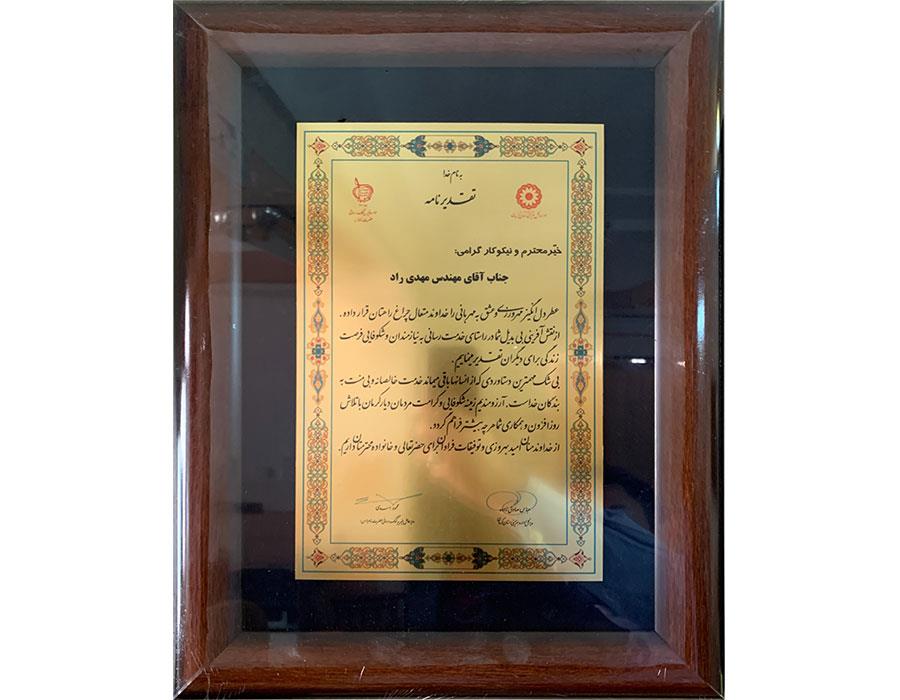 به نام خدا
تقدیرنامه
خیّر محترم و نیکوکار گرامی:
جناب آقای مهندس مهدی راد
عطر دل انگیز مهرورزی و عشق به مهربانی را خداوند متعال چراغ راهتان قرار داده.
از نقش آفرینی بی بدیل شما در راستای خدمت رسانی به نیازمندان و شکوفایی فرصت
زندگی برای دیگران تقدیر مینماییم.
بی شک مهمترین دستاوردی که از انسانها باقی میماند خدمت خالصانه و بی منت به
بندگان خداست. آرزومندیم زمینه شکوفایی و کرامت مردمان دیار کرمان با تلاش
روز افزون و همکاری شما هر چه بیشتر فراهم گردد.
از خداوند منان امید بهروزی و توفیقات فراوان برای حضرتعالی و خانواده محترمتان داریم.
عباس صادق زاده